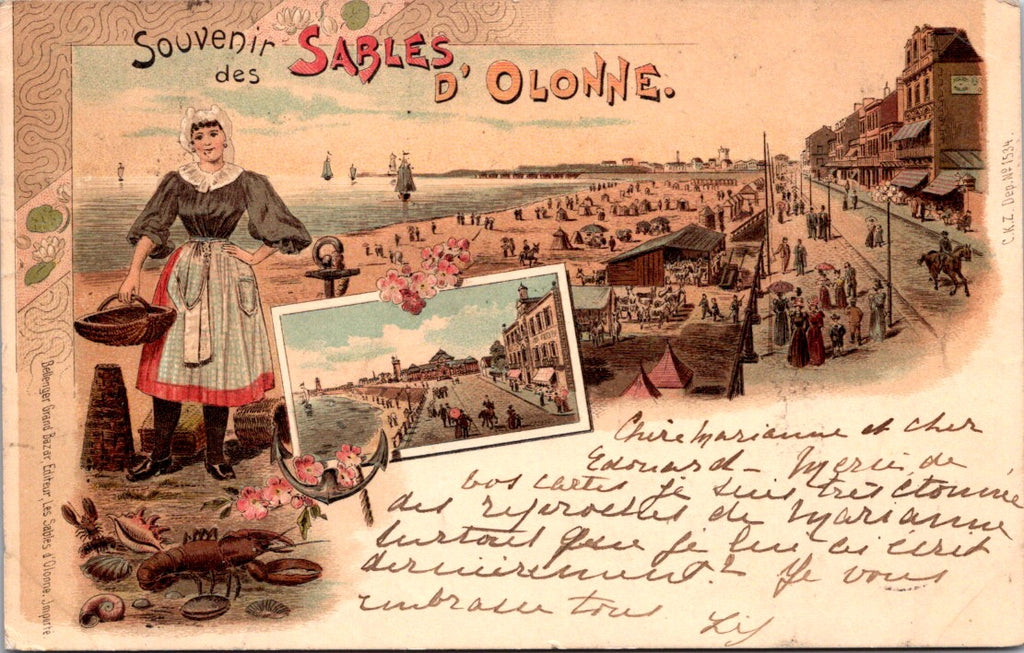 Souvenir
des
SABLES
D' OLONNE.
C.K.Z. Dep. No 1534.
Bellenger Grand Bazar, Editeur, Les Sables d'Olonne, Imperté
Chère Marianne et cher
Edouard - Merci de
vos cartes je suis très étonnée
des reproches de Marianne
surtout que je lui ai écrit
dernièrement! Je vous
embrasse tous